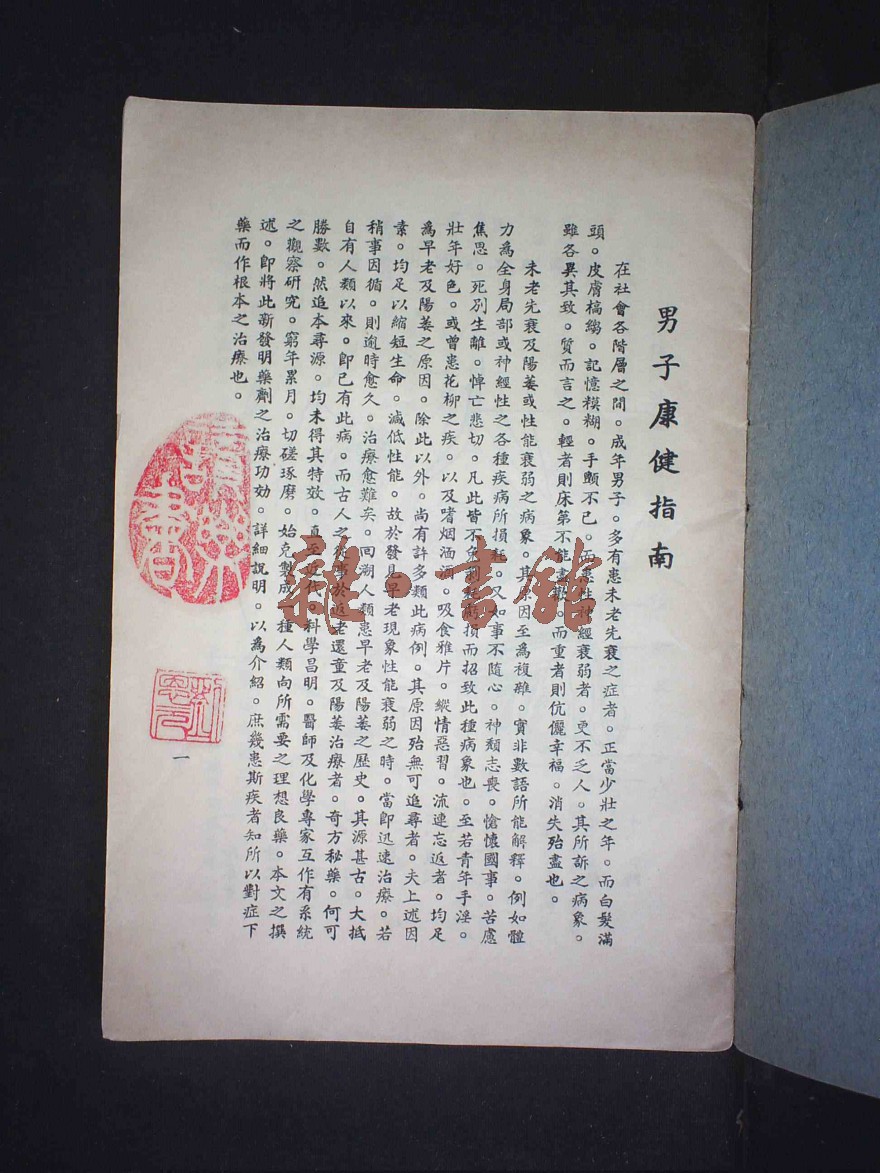 男子康健指南
在社會各階層之間。成年男子。多有患未老先衰之症者。正當少壯之年。而白髮滿
頭。皮膚槁縐。記憶糢糊。手顫不已。而患性神經衰弱者。更不乏人。其所訴之病象。
雖各異其致。質而言之。輕者則床第不能盡歡。而重者則伉儷幸福。消失殆盡也。
未老先衰及陽萎或性能衰弱之病象。其原因至為複雜。實非數語所能解釋。例如體
力為全身局部或神經性之各種疾病所損耗。又如事不隨心。神頹志喪。愴懷國事。苦慮
焦思。死別生離。悼亡悲切。凡此皆不免剝耗斲損而招致此種病象也。至若青年手淫。
壯年好色。或曾患花柳之疾。以及嗜烟酒酒。吸食雅片。縱情惡習。流連忘返者。均足
為早老及陽萎之原因。除此以外。尚有許多類此病例。其原因殆無可追尋者。夫上述因
素。均足以縮短生命。減低性能。故於發見早老現象性能衰弱之時。當即迅速治療。若
稍事因循。則逾時愈久。治療愈難矣。回溯人類患早老及陽萎之歷史。其源甚古。大抵
自有人類以來。即已有此病。而古人之從事於返老還童及陽萎治療者。奇方秘藥。何可
勝數。然追本尋源。均未得其特效。直至近代。科學昌明。醫師及化學專家互作有系統
之觀察研究。窮年累月。切磋琢磨。始克製成一種人類向所需要之理想良藥。本文之撰
述。即將此新發明藥劑之治療功効。詳細說明。以為介紹。庶幾患斯疾者知所以對症下
藥而作根本之治療也。
一
雜·書館